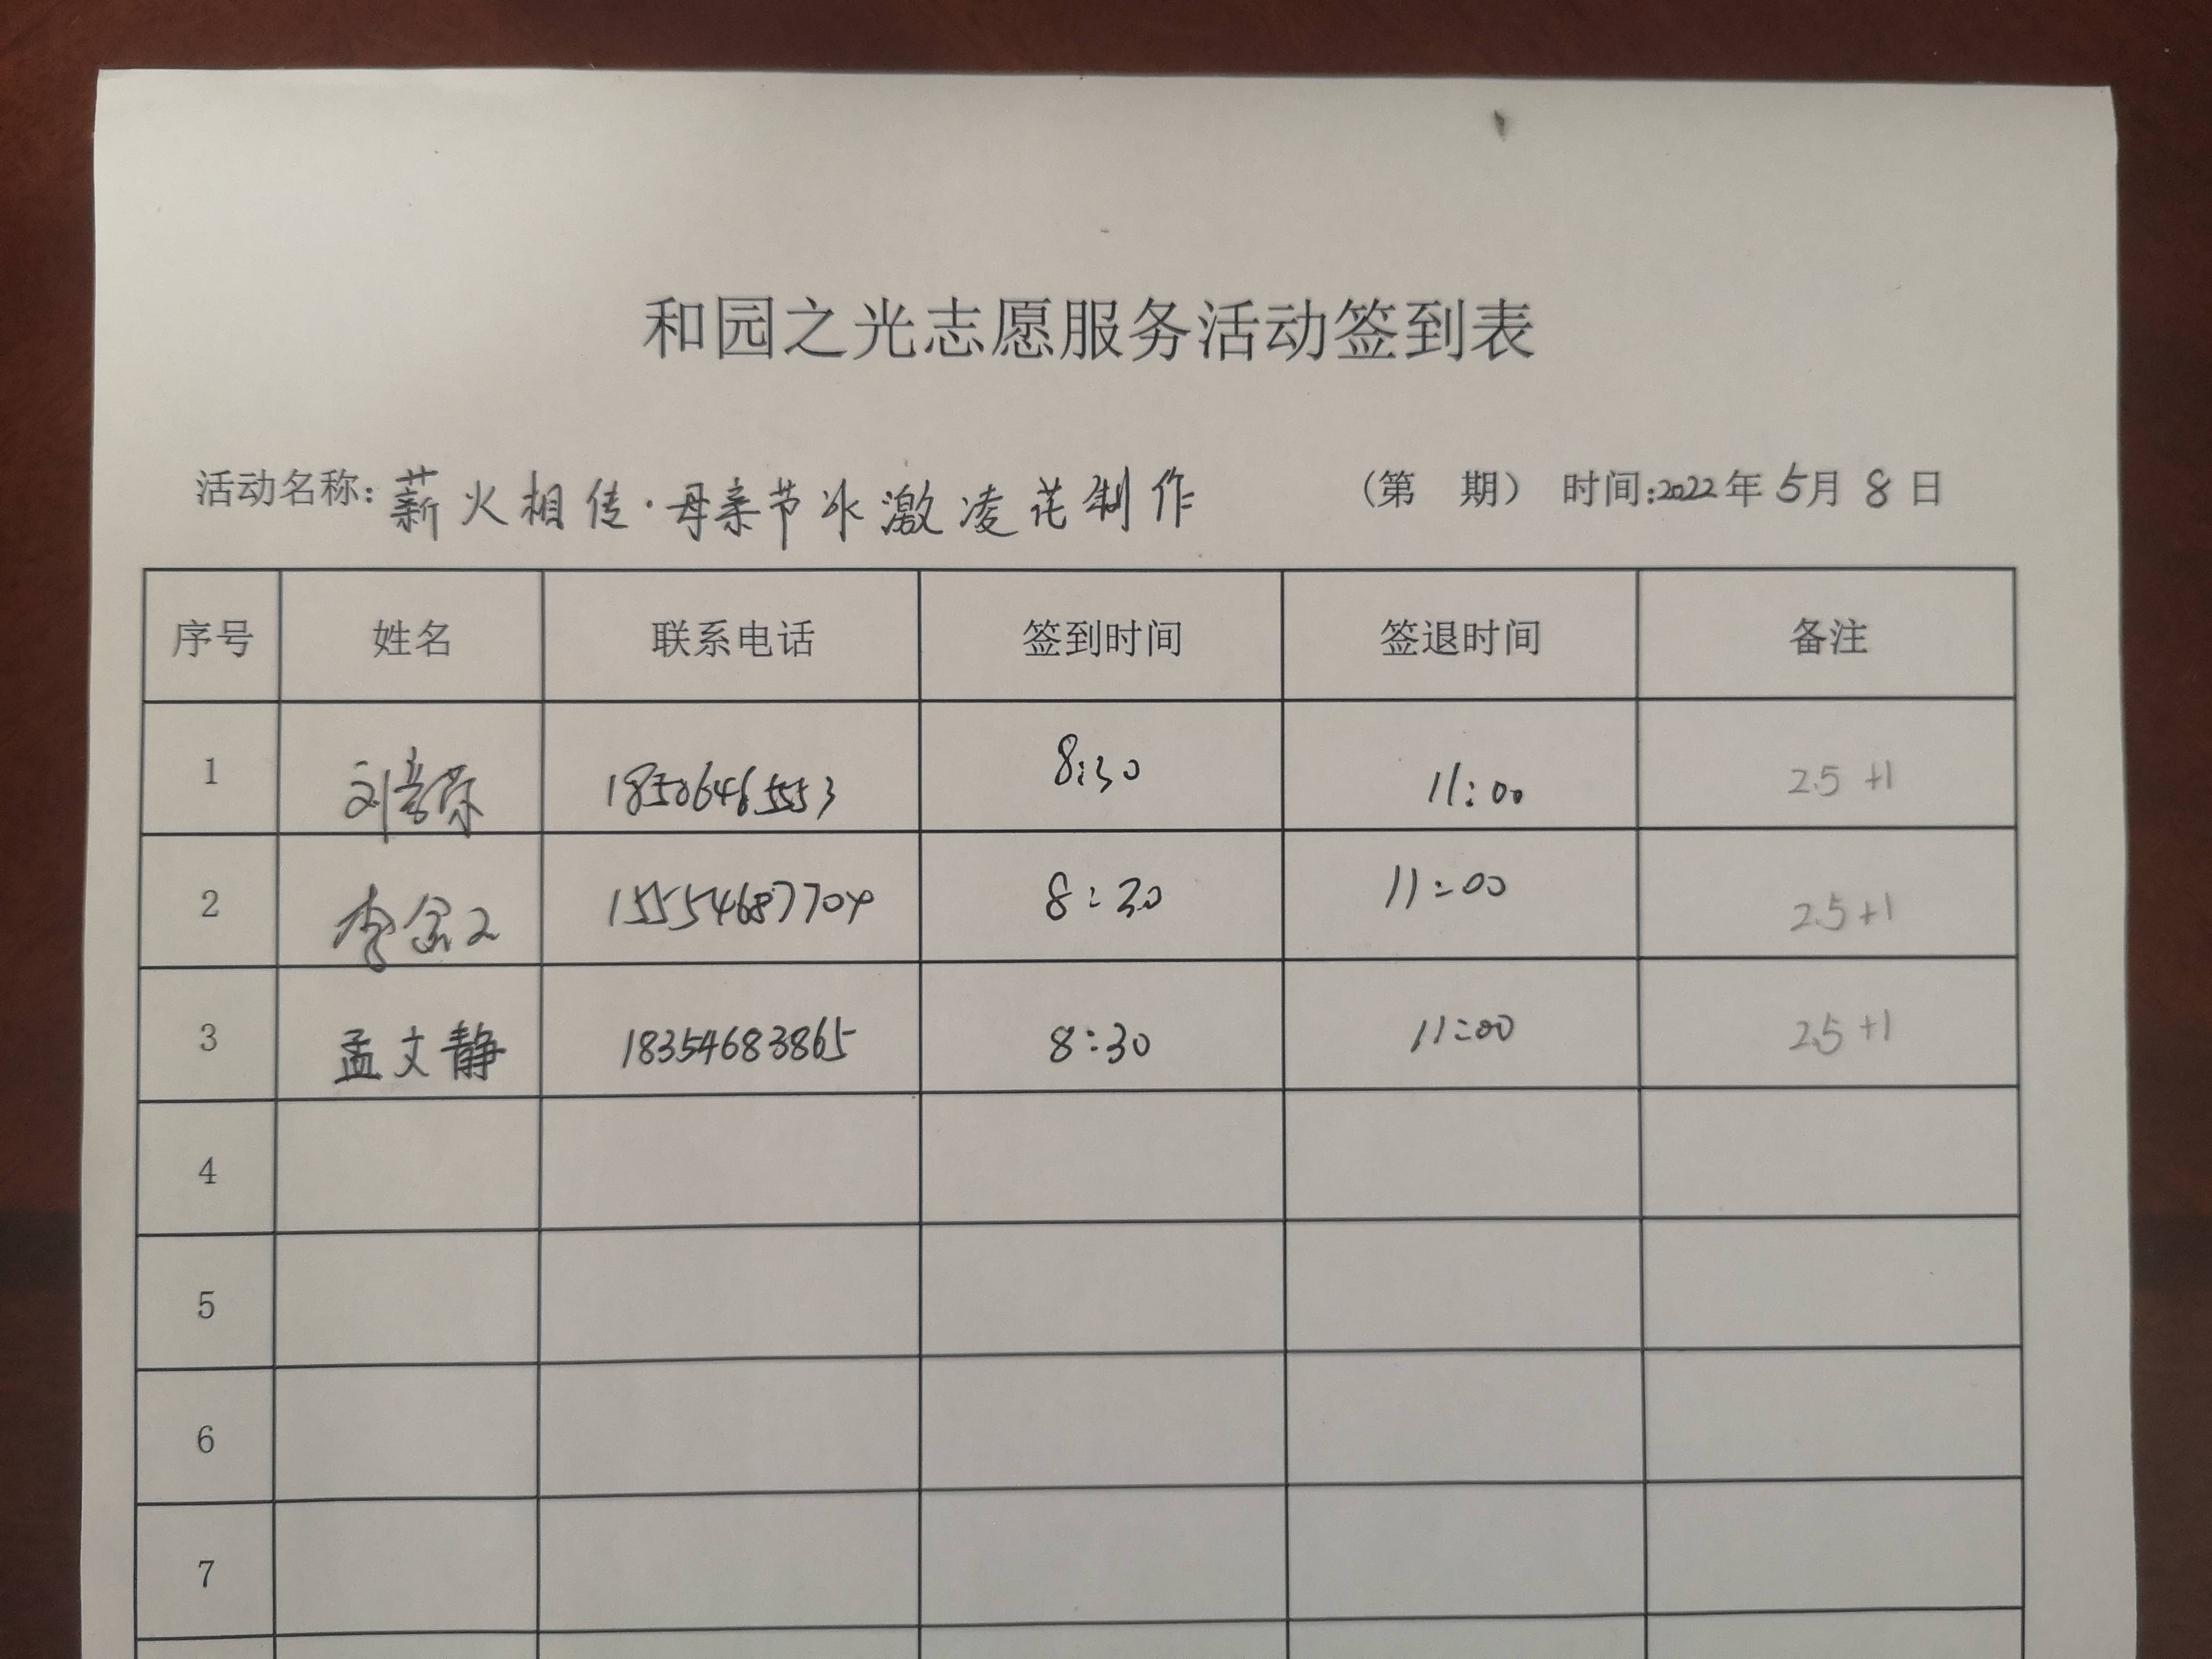 和园之光志愿服务活动签到表
活动名称: 薪火相传·母亲节冰激凌花制作 (第 期) 时间:2022年5月8日
序号 姓名 联系电话 签到时间 签退时间 备注
1 刘 18506465553 8:30 11:00 2.5 +1
2 李 15554687704 8:30 11:00 2.5 +1
3 孟文静 18354683865 8:30 11:00 2.5 +1
4
5
6
7